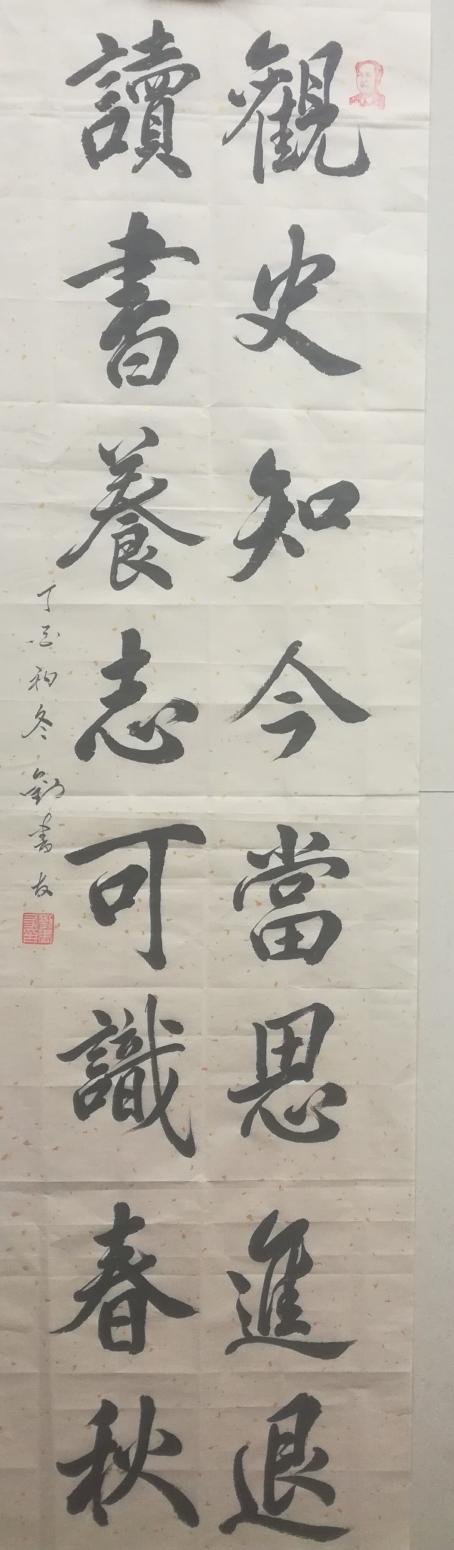 觀史知今當思進退
讀書養志可識春秋
丁酉初冬劉書友